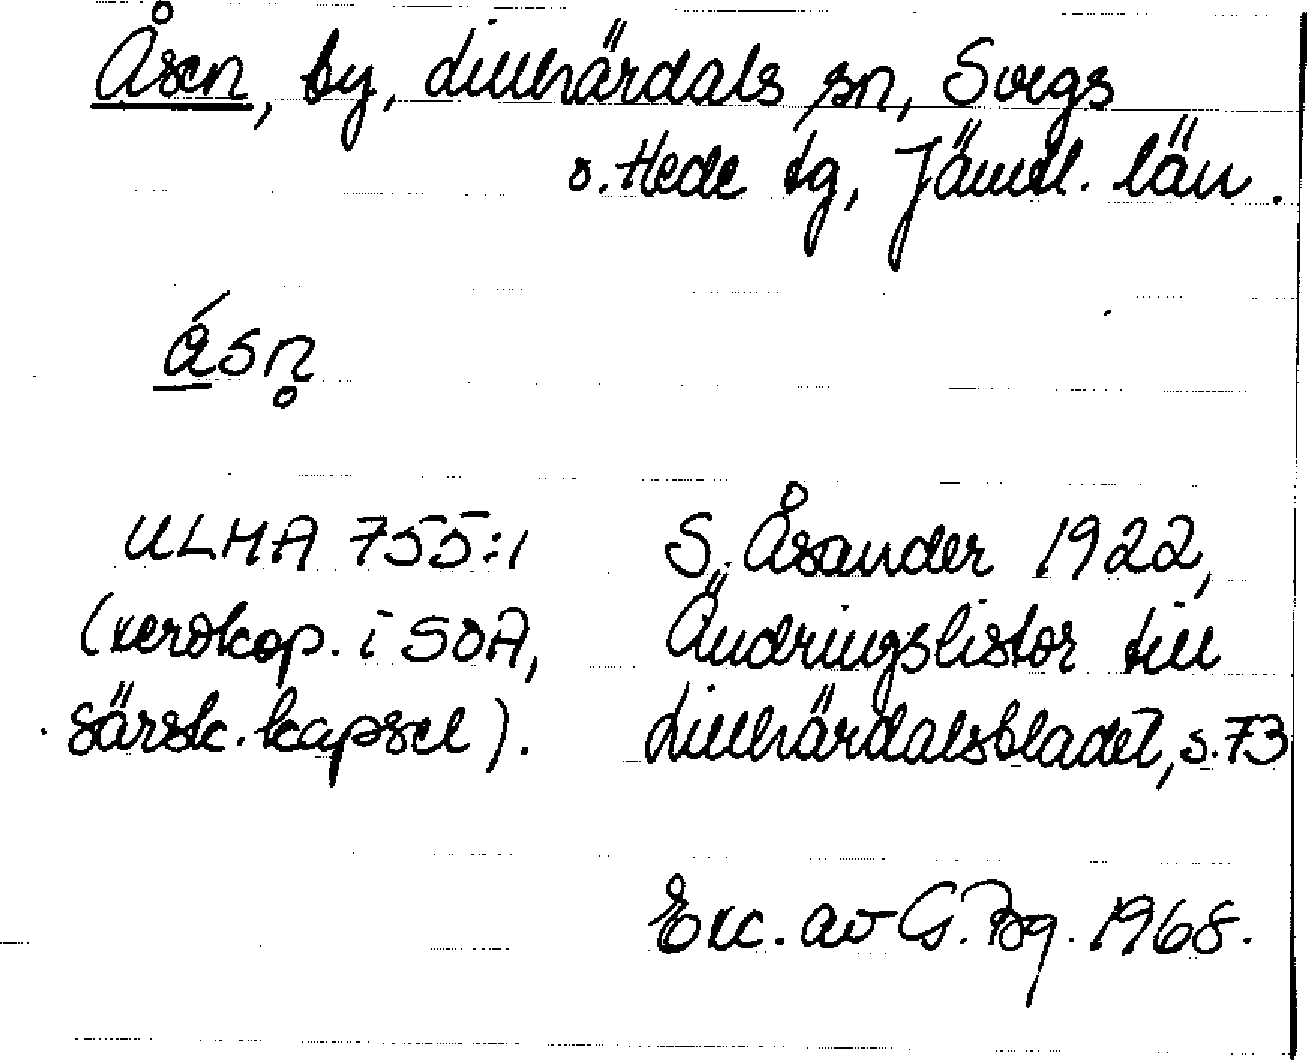 Åsen, by, Lillhärdals sn, Svegs
o. Hede tg, Jämtl. län.
ásn̥
ULMA 755:1
(xerokop. i SOA,
särsk. kapsel).
S. Åsander 1922,
Ändringslistor till
Lillhärdalsbladet, s. 73
Exc. av G. Bg. 1968.